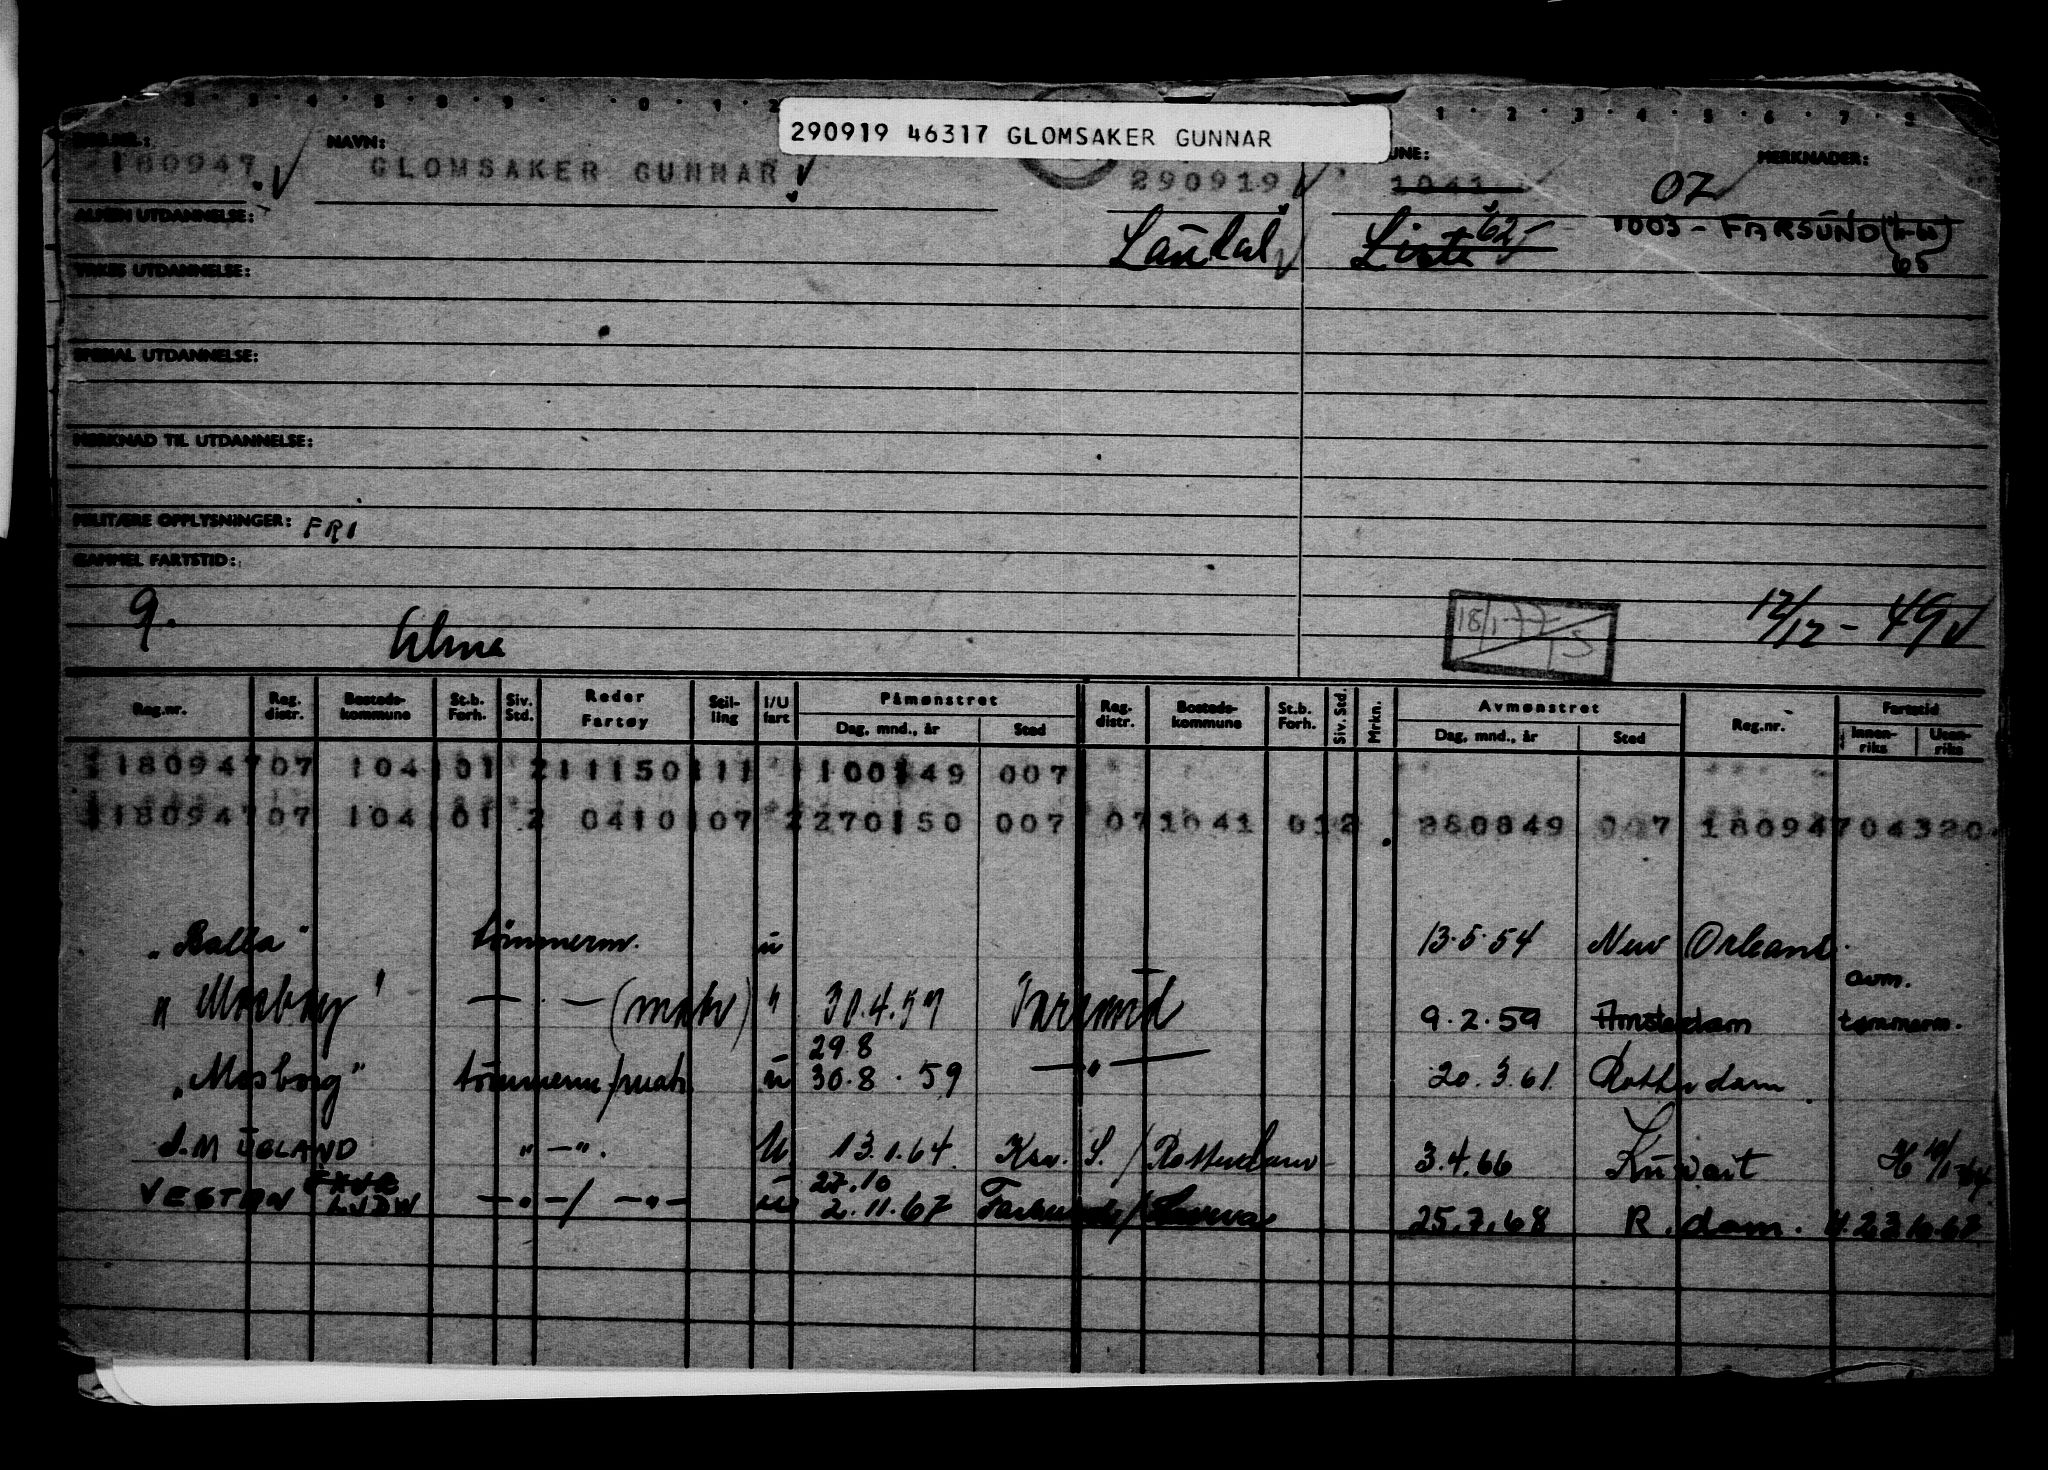 290919 46317 GLOMSAKER GUNNAR
NAVN: MERKNADER:
180947 GLOMSAKER GUNNAR 290919 1041 07
ALMEN UTDANNELSE: Laudal Lista 62 1003 - FARSUND 65
YRKES UTDANNELSE:
SPESIAL UTDANNELSE:
MERKNAD TIL UTDANNELSE:
MILITÆRE OPPLYSNINGER: FRI
GAMMEL FARTSTID:
g. Alma 18/1-77 S 12/12 - 49
Reg.nr. Reg. distr. Bosteds-kommune St.b. Forh. Siv. Std. Reder Fartøy Stil-ling I/U fart Påmønstret Dag, mnd., år Sted Reg. distr. Bosteds-kommune St.b. Forh. Siv. Std. Mrkn. Avmønstret Dag, mnd., år Sted Reg.nr. Fartstid Innen-riks Uten-riks
180947 07 104 101 2 11150 111 100149 007
180947 07 104 101 2 0410 107 2 270150 007 07 1041 01 2 280849 007 180947 04320
"Balla" tömmerm. u 13.5.54 New Orleans.
"Mosborg" — . — (matr) " 30.4.57 Farsund 9.2.59 Amsterdam avm. tømmerm.
"Mosborg" tömmerm/matr. u 29.8 30.8.59 — " — 20.3.61 Rotterdam
J.M UGLAND " — ". U 13.1.64 Ksn. S. / Rotterdam 3.4.66 Kuwait
VESTAN LVDW — " — / — " — u 27.10 2.11.67 25.7.68 R.dam.